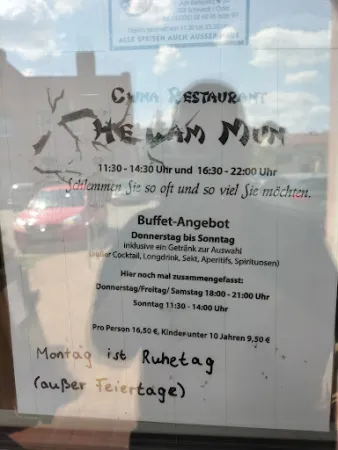 ALLE SPEISEN AUCH AUSSER
China Restaurant
He Lam Mun
11:30 - 14:30 Uhr und 16:30 - 22:00 Uhr
Schlemmen Sie so oft und so viel Sie möchten.
Buffet-Angebot
Donnerstag bis Sonntag
inklusive ein Getränk zur Auswahl
(außer Cocktail, Longdrink, Sekt, Aperitifs, Spirituosen)
Hier noch mal zusammengefasst:
Donnerstag/Freitag/ Samstag 18:00 - 21:00 Uhr
Sonntag 11:30 - 14:00 Uhr
Pro Person 16,50 €, Kinder unter 10 Jahren 9,50 €
Montag ist Ruhetag
(außer Feiertage)